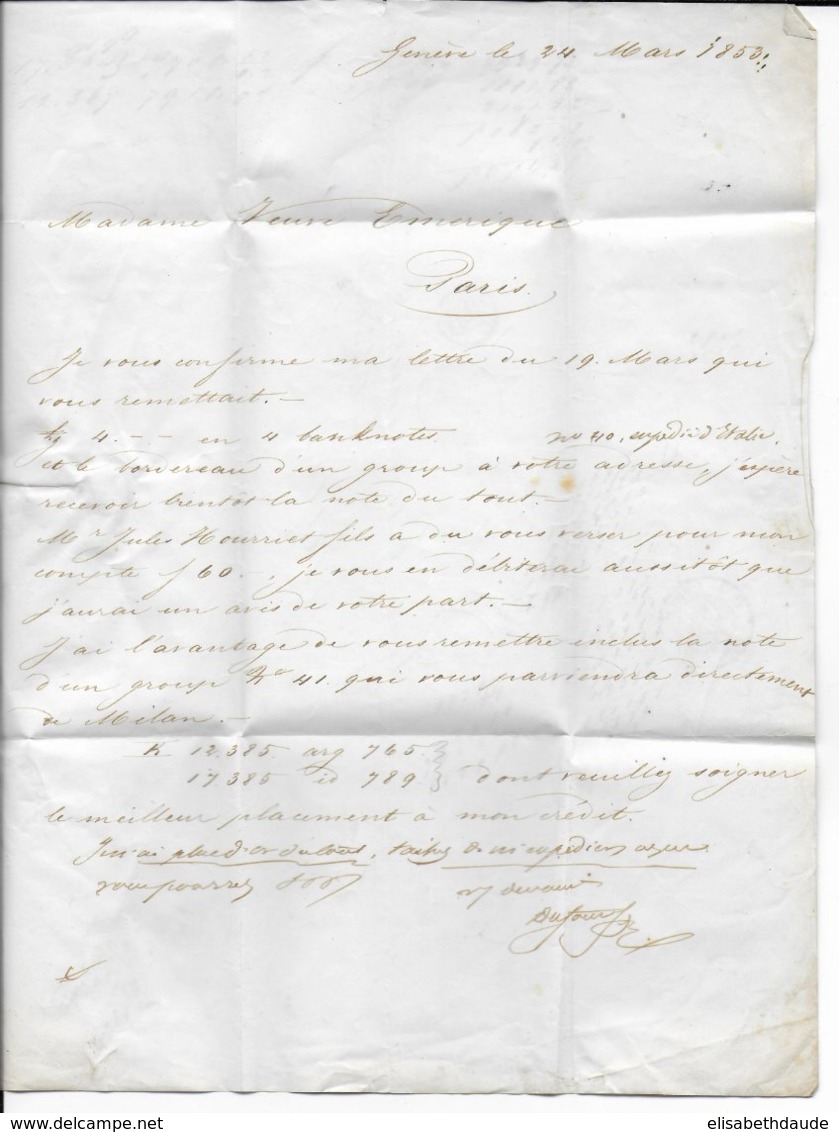 Genève le 24. Mars 1853.
Madame Veuve Emerique
Paris.
Je vous confirme ma lettre du 19. Mars qui
vous remettait. —
4. - - en 4 banknotes. no 40, expédié d'Italie.
et le bordereau d'un group à votre adresse, j'espère
recevoir bientôt la note du tout. —
Mr Jules Hourriet fils a du vous verser pour mon
compte f 60 -, je vous en débiterai aussitôt que
j'aurai un avis de votre part. —
J'ai l'avantage de vous remettre inclus la note
d'un group No 41. qui vous parviendra directement
de Milan. —
K 12.385. arg 765.
17.385 id 789. dont veuillez soigner
le meilleur placement à mon crédit.
plus d'or
vous pourrez
Dufour
elisabethdaude